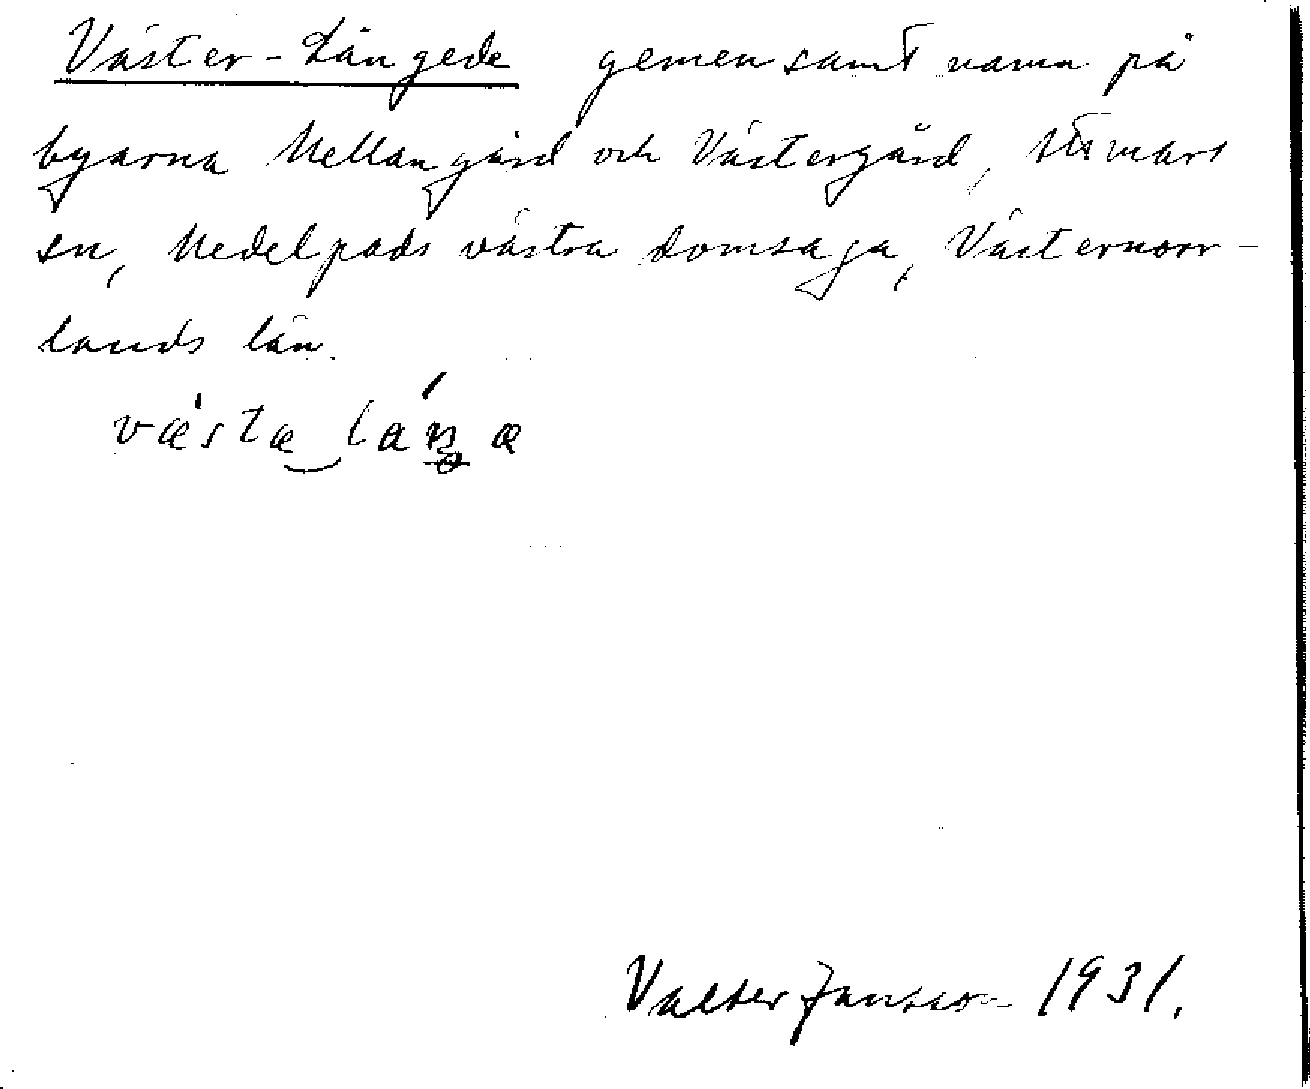 Väster-Längede gemensamt namn på
byarna Mellangård och Västergård, Attmars
sn, Medelpads västra domsaga, Västernorr-
lands län.
væ̀sta
Valter Jansson 1931.